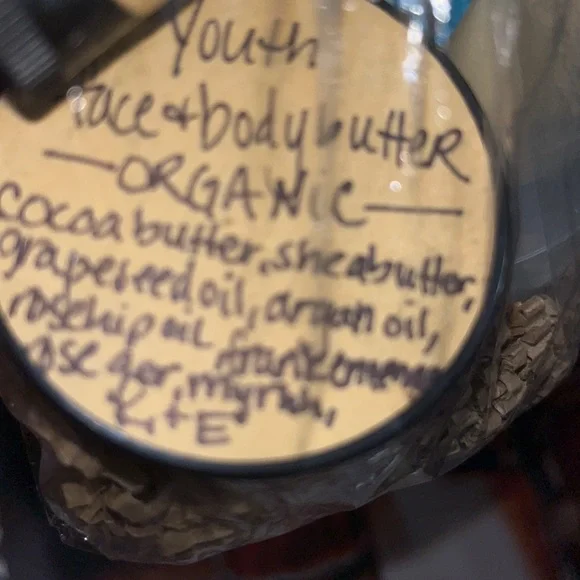 Youth
Face & body butter
— ORGANIC —
cocoa butter, shea butter,
grapeseed oil, argan oil,
rosehip oil
myrrh,
+ E